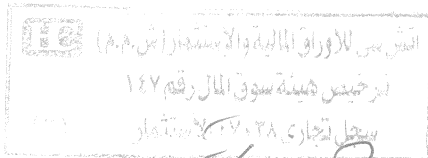 اتش سى للاوراق المالية والاستثمار (ش.م.م)
ترخيص هيئة سوق المال رقم ١٤٧
سجل تجارى ٠٧٠٣٨ الاستثمار